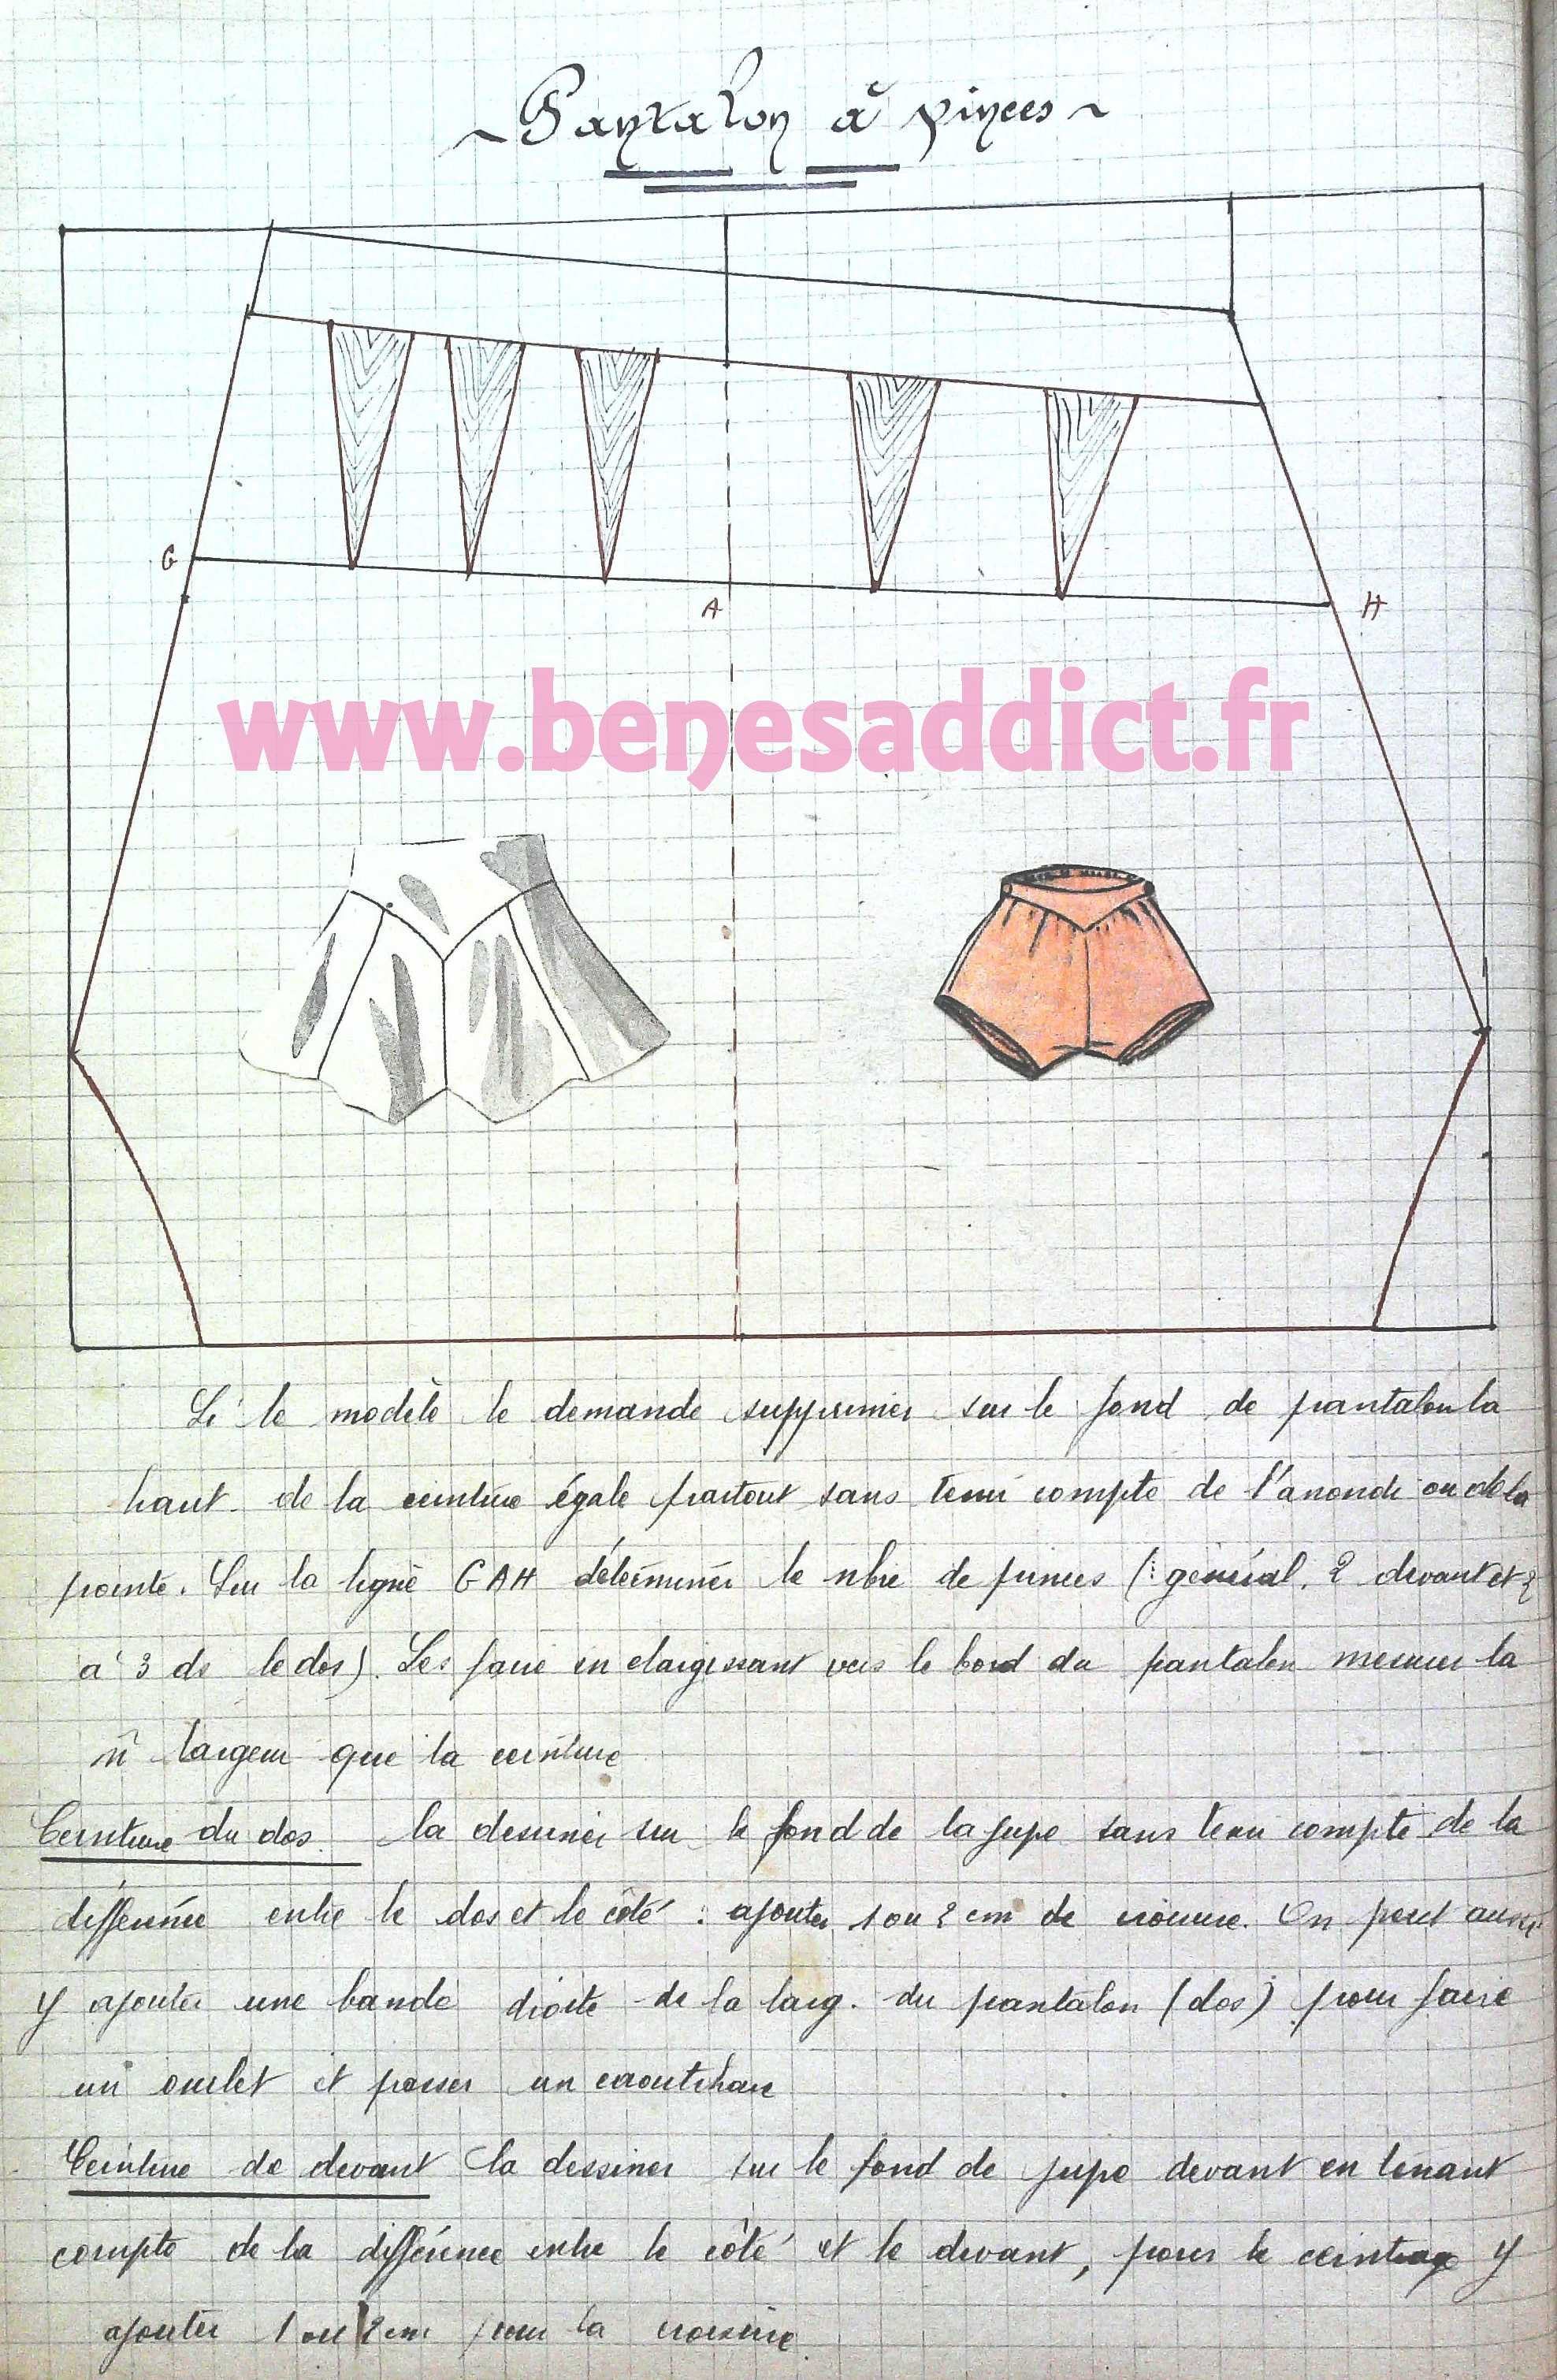 ~ Pantalon à pinces ~
G
A
H
www.benesaddict.fr
Si le modèle le demande supprimer sur le fond de pantalon la
haut. de la ceinture égale partout sans tenir compte de l'arrondi ou de la
pointe. Sur la ligne GAH déterminer le nbre de pinces (: général. 2 devant et 2
à 3 ds le dos). Les faire en élargissant vers le bord du pantalon mesurer la
m̂ largeur que la ceinture
Ceinture du dos la dessiner sur le fond de la jupe sans tenir compte de la
différence entre le dos et le côté : ajouter 1 ou 2 cm de croisure. On peut aussi
y ajouter une bande droite de la larg. du pantalon (dos) pour faire
un ourlet et passer un caoutchouc
Ceinture de devant la dessiner sur le fond de jupe devant en tenant
compte de la différence entre le côté et le devant, pour le ceintrage y
ajouter 1 ou 2 cm pour la croisure